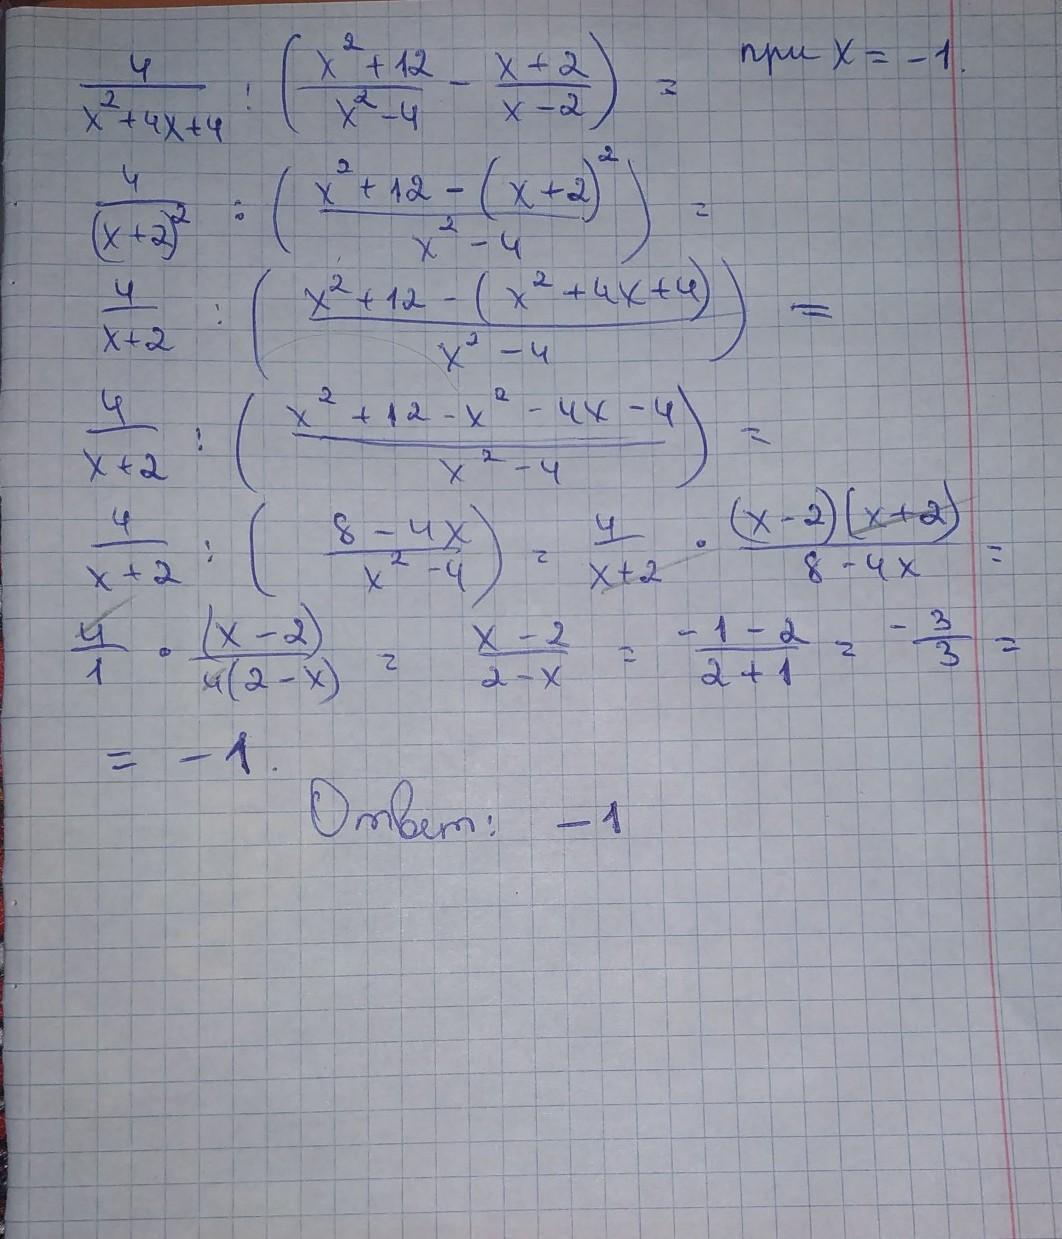 4/(x²+4x+4) : ((x²+12)/(x²-4) - (x+2)/(x-2)) = при x = -1.
4/(x+2)² : ((x²+12-(x+2)²)/(x²-4)) =
4/(x+2) : ((x²+12-(x²+4x+4))/(x²-4)) =
4/(x+2) : ((x²+12-x²-4x-4)/(x²-4)) =
4/(x+2) : ((8-4x)/(x²-4)) = 4/(x+2) · ((x-2)(x+2))/(8-4x) =
4/1 · (x-2)/(4(2-x)) = (x-2)/(2-x) = (-1-2)/(2+1) = -3/3 =
= -1.
Ответ: -1